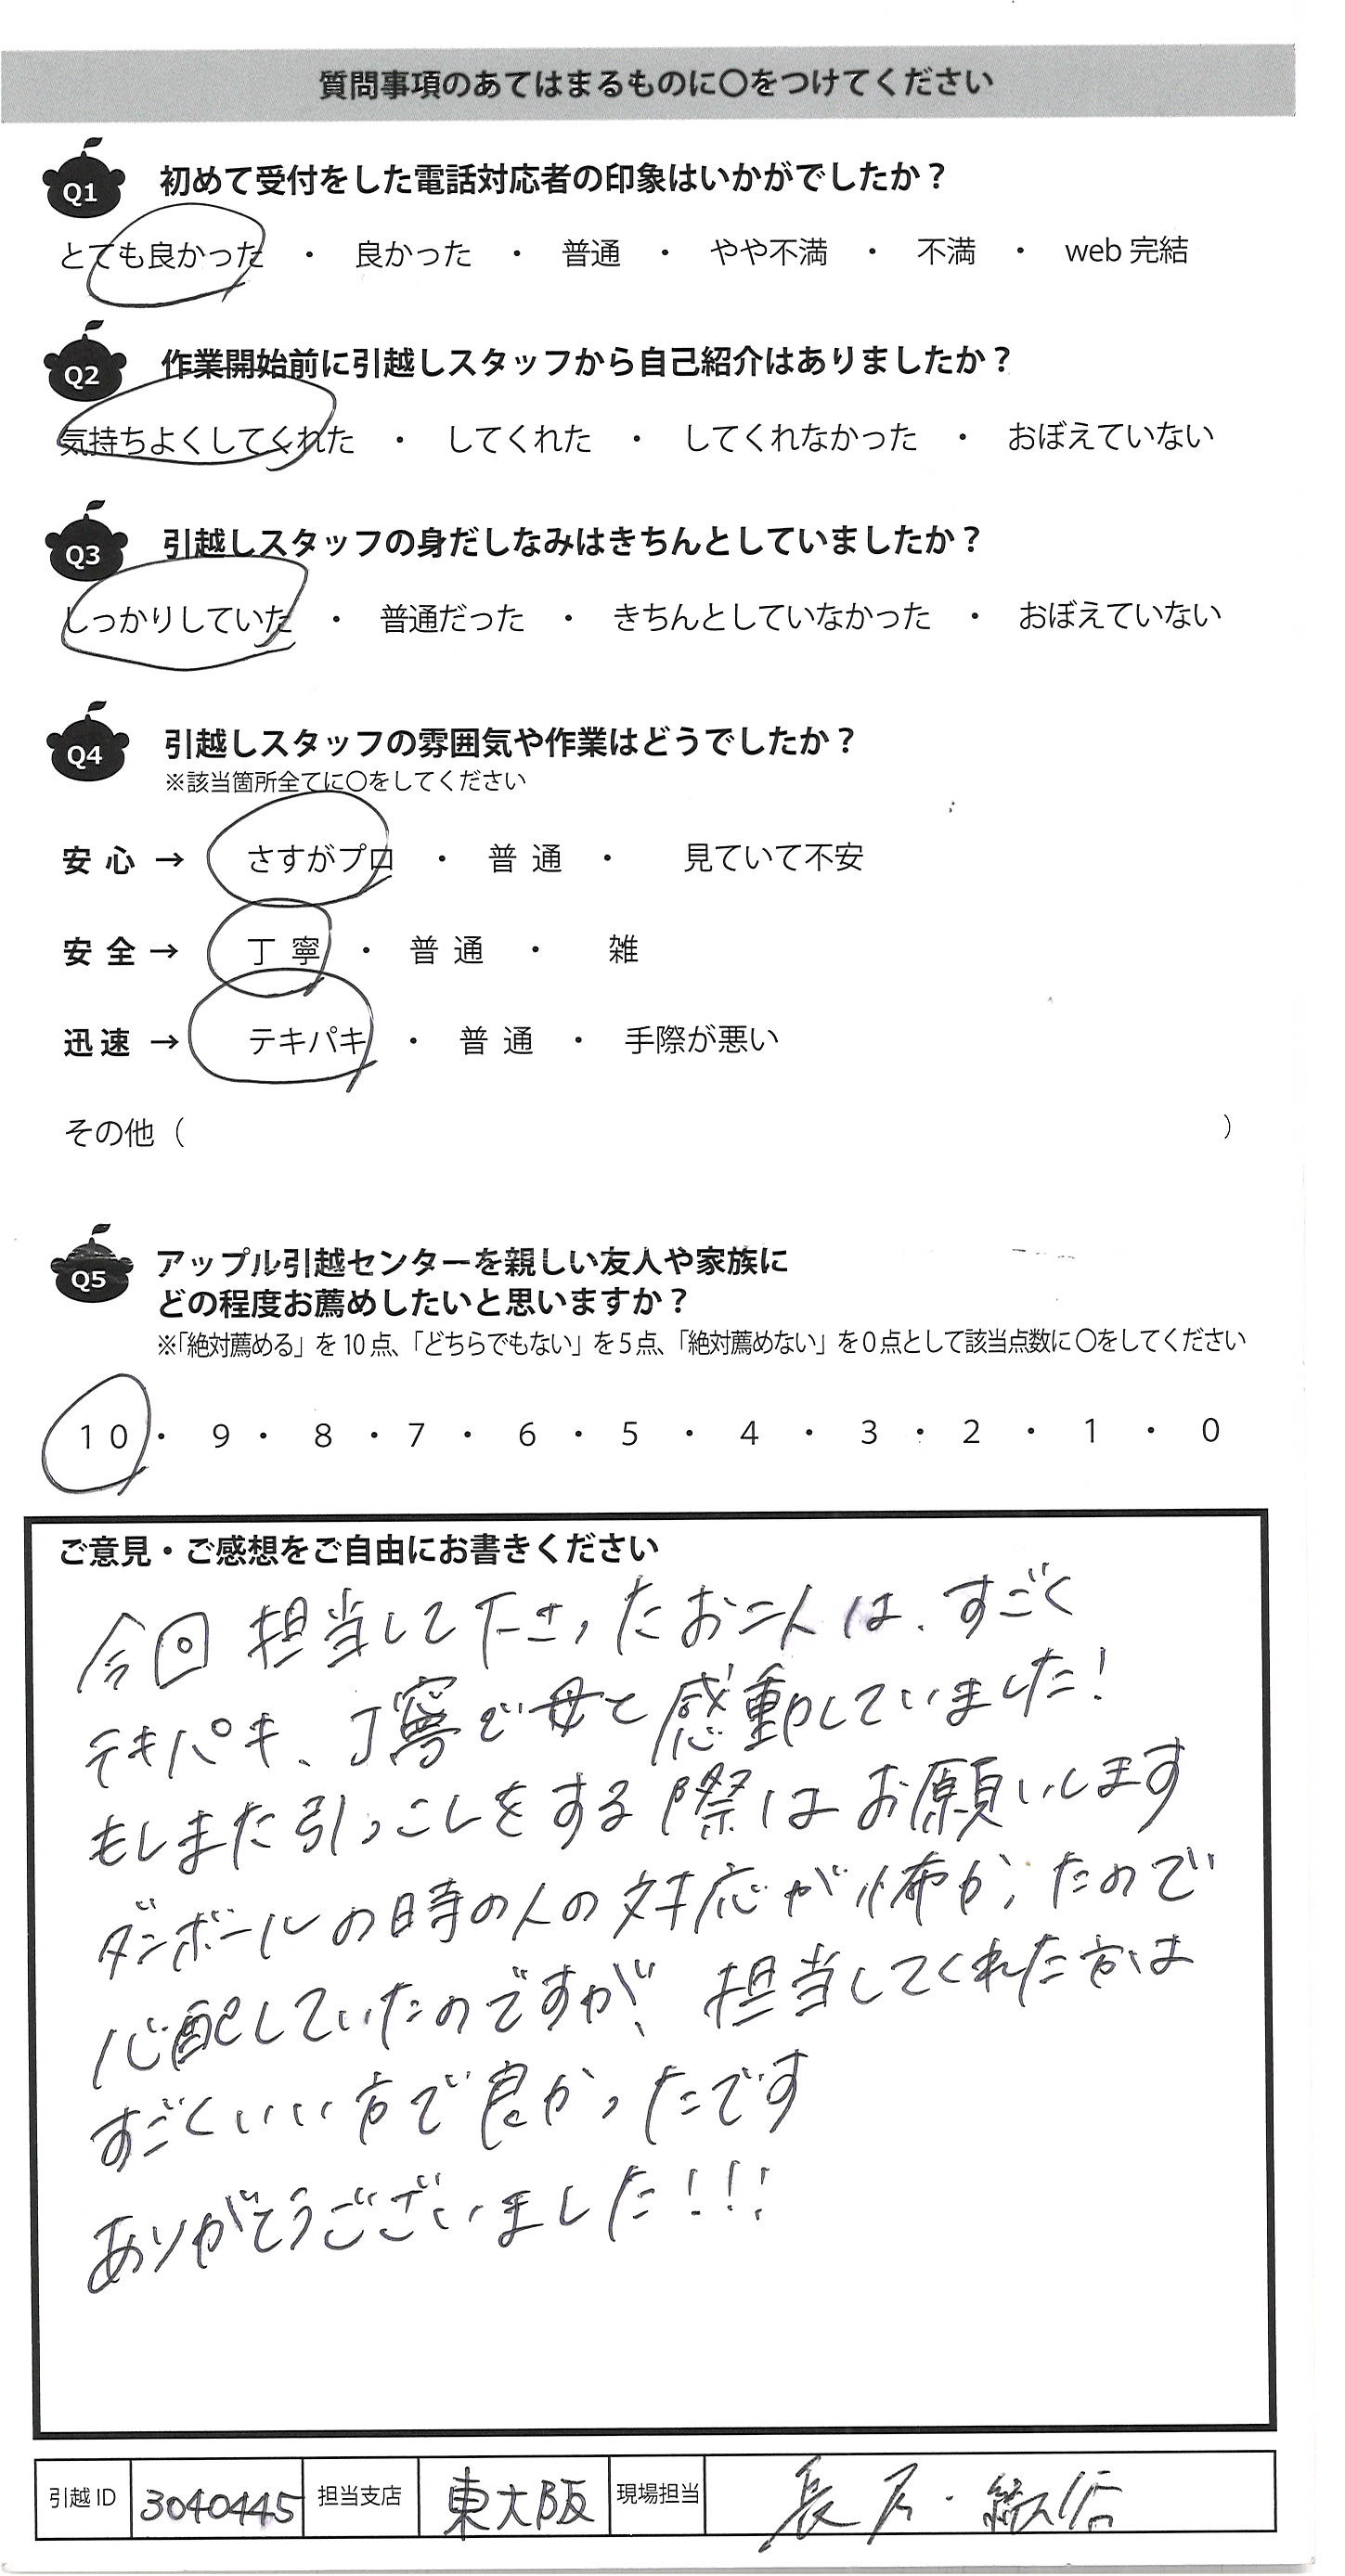 質問事項のあてはまるものに〇をつけてください
Q1 初めて受付をした電話対応者の印象はいかがでしたか？
とても良かった ・ 良かった ・ 普通 ・ やや不満 ・ 不満 ・ web 完結
Q2 作業開始前に引越しスタッフから自己紹介はありましたか？
気持ちよくしてくれた ・ してくれた ・ してくれなかった ・ おぼえていない
Q3 引越しスタッフの身だしなみはきちんとしていましたか？
しっかりしていた ・ 普通だった ・ きちんとしていなかった ・ おぼえていない
Q4 引越しスタッフの雰囲気や作業はどうでしたか？
※該当箇所全てに〇をしてください
安心 → さすがプロ ・ 普通 ・ 見ていて不安
安全 → 丁寧 ・ 普通 ・ 雑
迅速 → テキパキ ・ 普通 ・ 手際が悪い
その他（ ）
Q5 アップル引越センターを親しい友人や家族に
どの程度お薦めしたいと思いますか？
※「絶対薦める」を10点、「どちらでもない」を5点、「絶対薦めない」を0点として該当点数に〇をしてください
10 ・ 9 ・ 8 ・ 7 ・ 6 ・ 5 ・ 4 ・ 3 ・ 2 ・ 1 ・ 0
ご意見・ご感想をご自由にお書きください
今回担当して下さったお二人は、すごく
テキパキ、丁寧で母と感動していました！
もしまた引っこしをする際はお願いします
ダンボールの時の人の対応が怖かったので
心配していたのですが、担当してくれた方は
すごくいい方で良かったです
ありがとうございました！！！
引越ID 3040445 担当支店 東大阪 現場担当